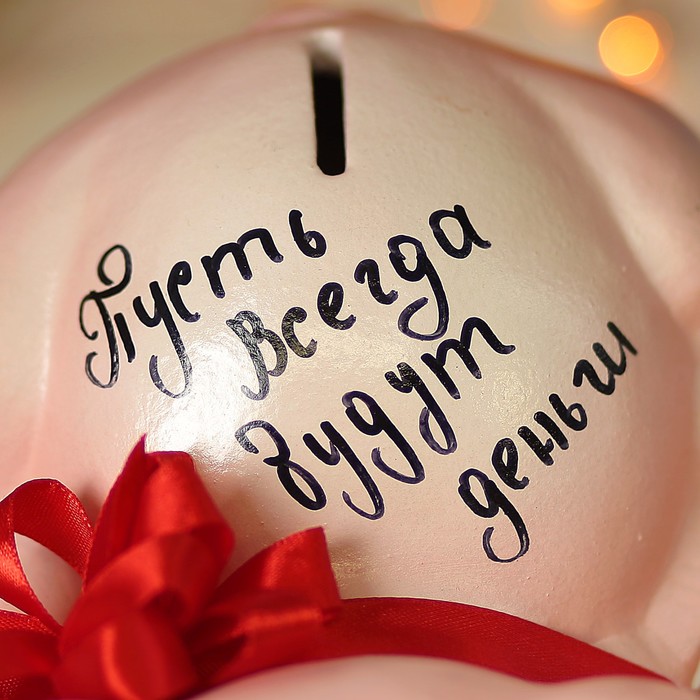 Пусть
Всегда
будут
деньги